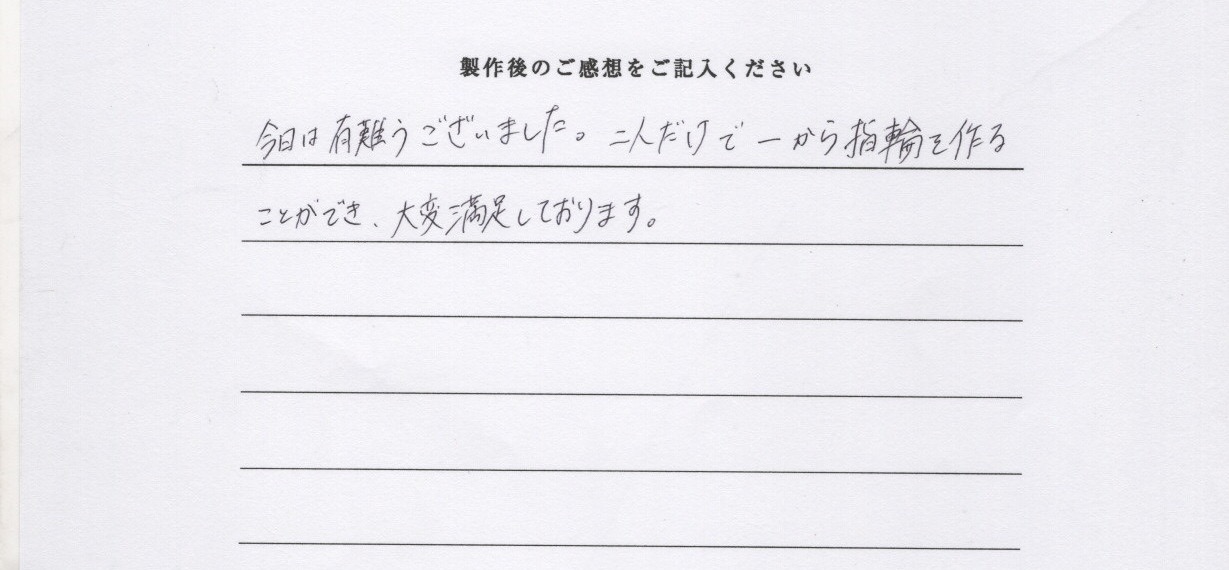 製作後のご感想をご記入ください
今日は有難うございました。二人だけで一から指輪を作る
ことができ、大変満足しております。